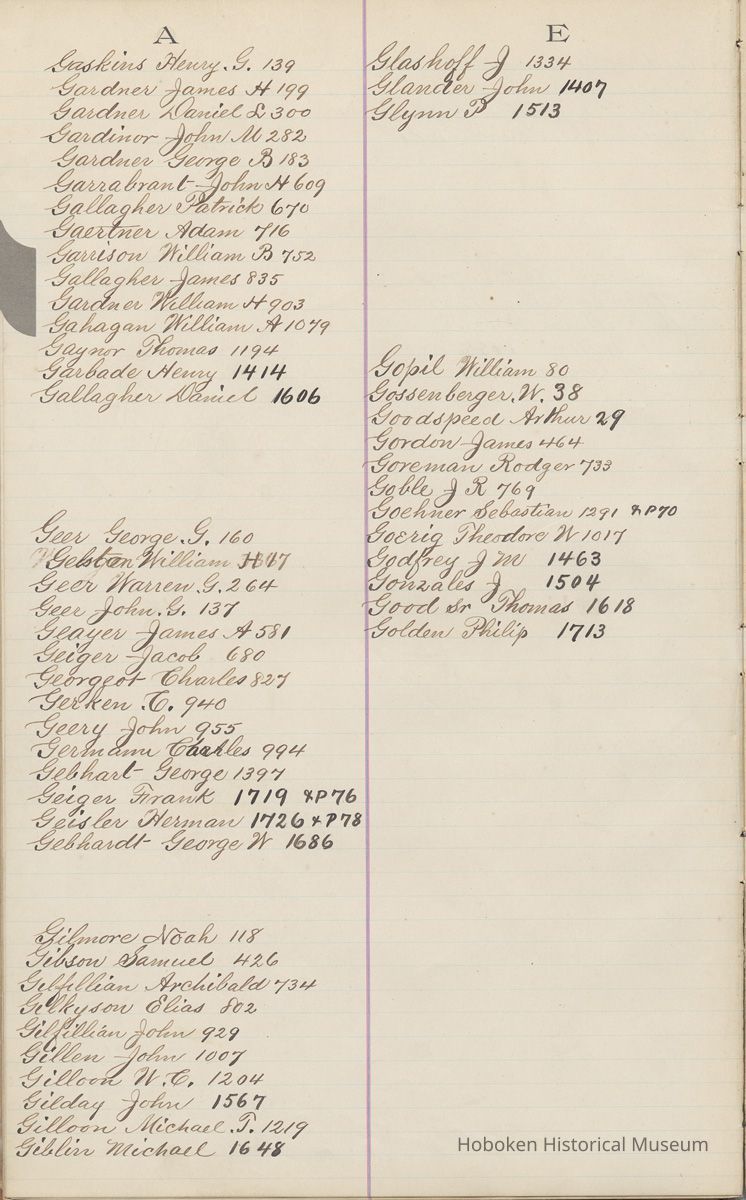 A
Gaskins Henry. G. 139
Gardner James H 199
Gardner Daniel L 300
Gardinor John M 282
Gardner George B 183
Garrabrant John H 609
Gallagher Patrick 670
Gaertner Adam 716
Garrison William B 752
Gallagher James 835
Gardner William H 903
Gahagan William A 1079
Gaynor Thomas 1194
Garbade Henry 1414
Gallagher Daniel 1606
Geer George. G. 160
Gelston William
Geer Warren. G. 264
Geer John. G. 137
Geayer James A 581
Geiger Jacob 680
Georgeot Charles 827
Gerken. C. 940
Geery John 955
Germann Charles 994
Gebhart George 1397
Geiger Frank 1719 & P 76
Geisler Herman 1726 & P 78
Gebhardt George W 1686
Gilmore Noah 118
Gibson Samuel 426
Gilfillian Archibald 734
Gilkyson Elias 802
Gilfillian John 929
Gillen John 1007
Gilloon W. C. 1204
Gilday John 1567
Gilloon Michael. T. 1219
Giblin Michael 1648
E
Glashoff J 1334
Glander John 1407
Glynn P 1513
Gopil William 80
Gossenberger. W. 38
Goodspeed Arthur 29
Gordon James 464
Goreman Rodger 733
Goble J R 769
Goehner Sebastian 1291 & P 70
Goerig Theodore W 1017
Godfrey J M 1463
Gonzales J 1504
Good Sr Thomas 1618
Golden Philip 1713
Hoboken Historical Museum